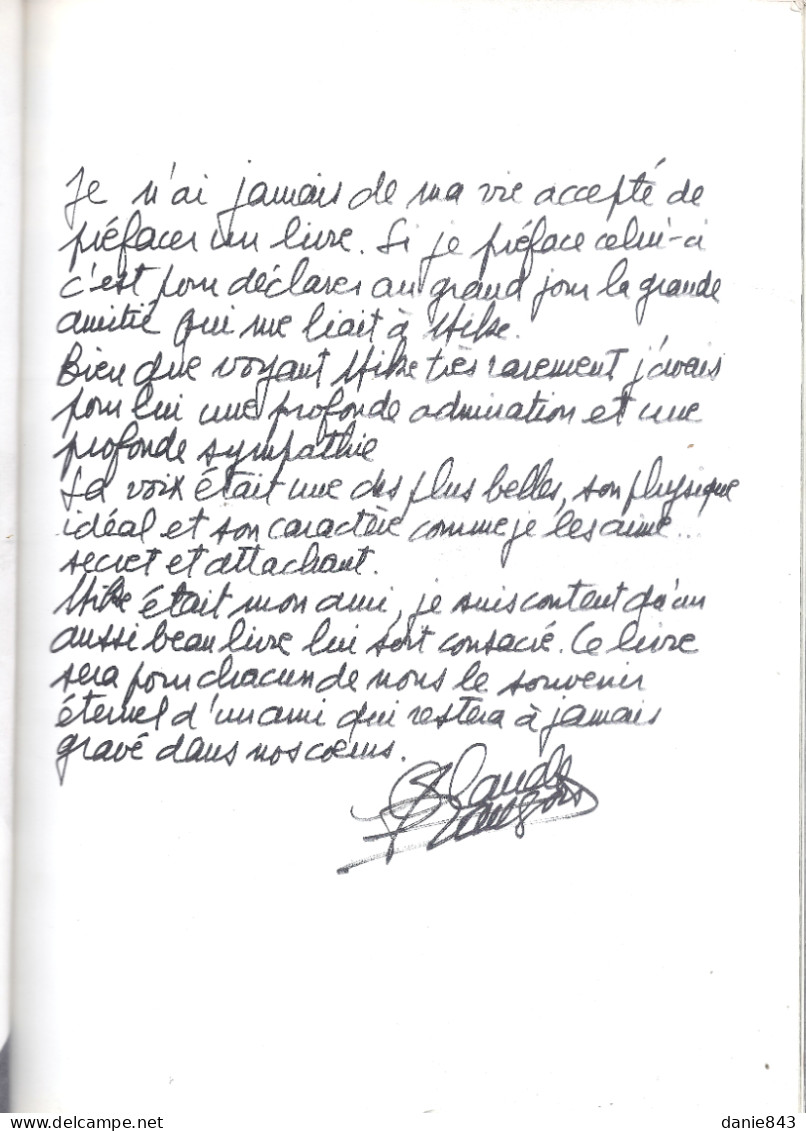 Je n'ai jamais de ma vie accepté de
préfacer un livre. Si je préface celui-ci
c'est pour déclarer au grand jour la grande
amitié qui me liait à Mike.
Bien que voyant Mike très rarement j'avais
pour lui une profonde admiration et une
profonde sympathie
Sa voix était une des plus belles, son physique
idéal et son caractère comme je les aime...
secret et attachant.
Mike était mon ami, je suis content qu'un
aussi beau livre lui soit consacré. Ce livre
sera pour chacun de nous le souvenir
éternel d'un ami qui restera à jamais
gravé dans nos coeurs.
Claude
François
danie843